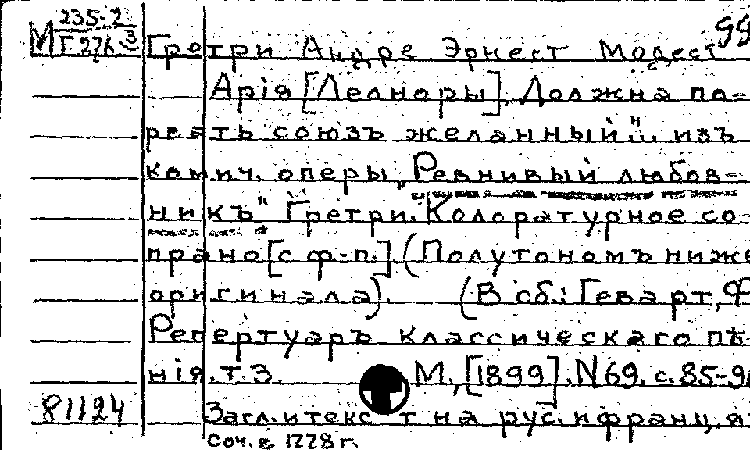 235-2
М Г276-3
99
Гретри Андре Эрнест Модест
Арія [Леоноры]. Должна по-
рвать союзъ желанный"... изъ
комич. оперы „Ревнивый любов-
никъ" Гретри. Колоратурное со-
прано [с ф-п.] (Полутономъ ниже
оригинала). (В сб.: Геварт, Ф
Репертуаръ классическаго пѣ-
нія. т. 3. М., [1899]. N 69. с. 85-9
81124
Загл. и текст на рус. и франц. я
Соч. в 1778 г.